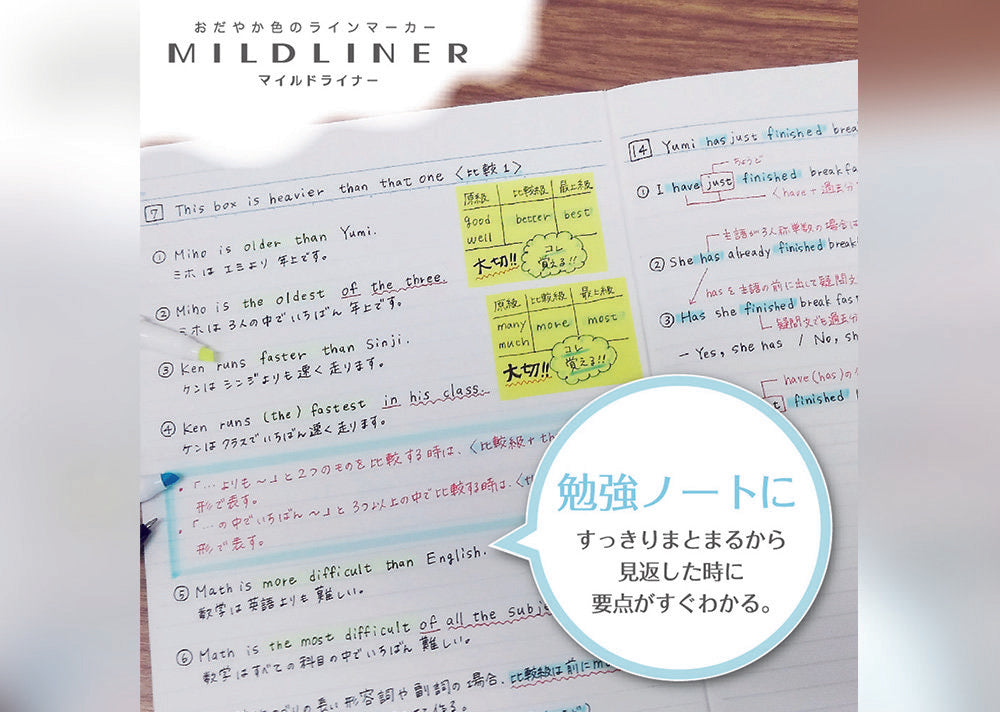 おだやか色のラインマーカー
MILDLINER
マイルドライナー
7 This box is heavier than that one 〈比較1〉
① Miho is older than Yumi.
ミホは エミより 年上です。
② Miho is the oldest of the three.
ミホは 3人の中でいちばん 年上です。
③ Ken runs faster than Sinji.
ケンは シンジよりも 速く 走ります。
④ Ken runs (the) fastest in his class.
ケンは クラスで いちばん 速く 走ります。
・「…よりも〜」と2つのものを比較する時は、〈比較級+th
形で表す。
・「…の中でいちばん〜」と3つ以上の中で比較する時は、
形で表す。
⑤ Math is more difficult than English.
数学は 英語よりも 難しい。
⑥ Math is the most difficult of all the subje
数学は すべての 科目の中で いちばん 難しい。
の長い形容詞や副詞の場合、比較級は前にmo
原級 比較級 最上級
good better best
well
大切!! コレ
覚える!!
原級 比較級 最上級
many more most
much
大切!! コレ
覚える!!
14 Yumi has just finished brea
ちょうど
① I have just finished breakfa
〈have+過去分
主語が3人称単数の場合は
② She has already finished break
hasを主語の前に出して疑問文
③ Has she finished breakfas
疑問文でも過去分
– Yes, she has / No, sh
have(has)の
finished b
勉強ノートに
すっきりまとまるから
見返した時に
要点がすぐわかる。